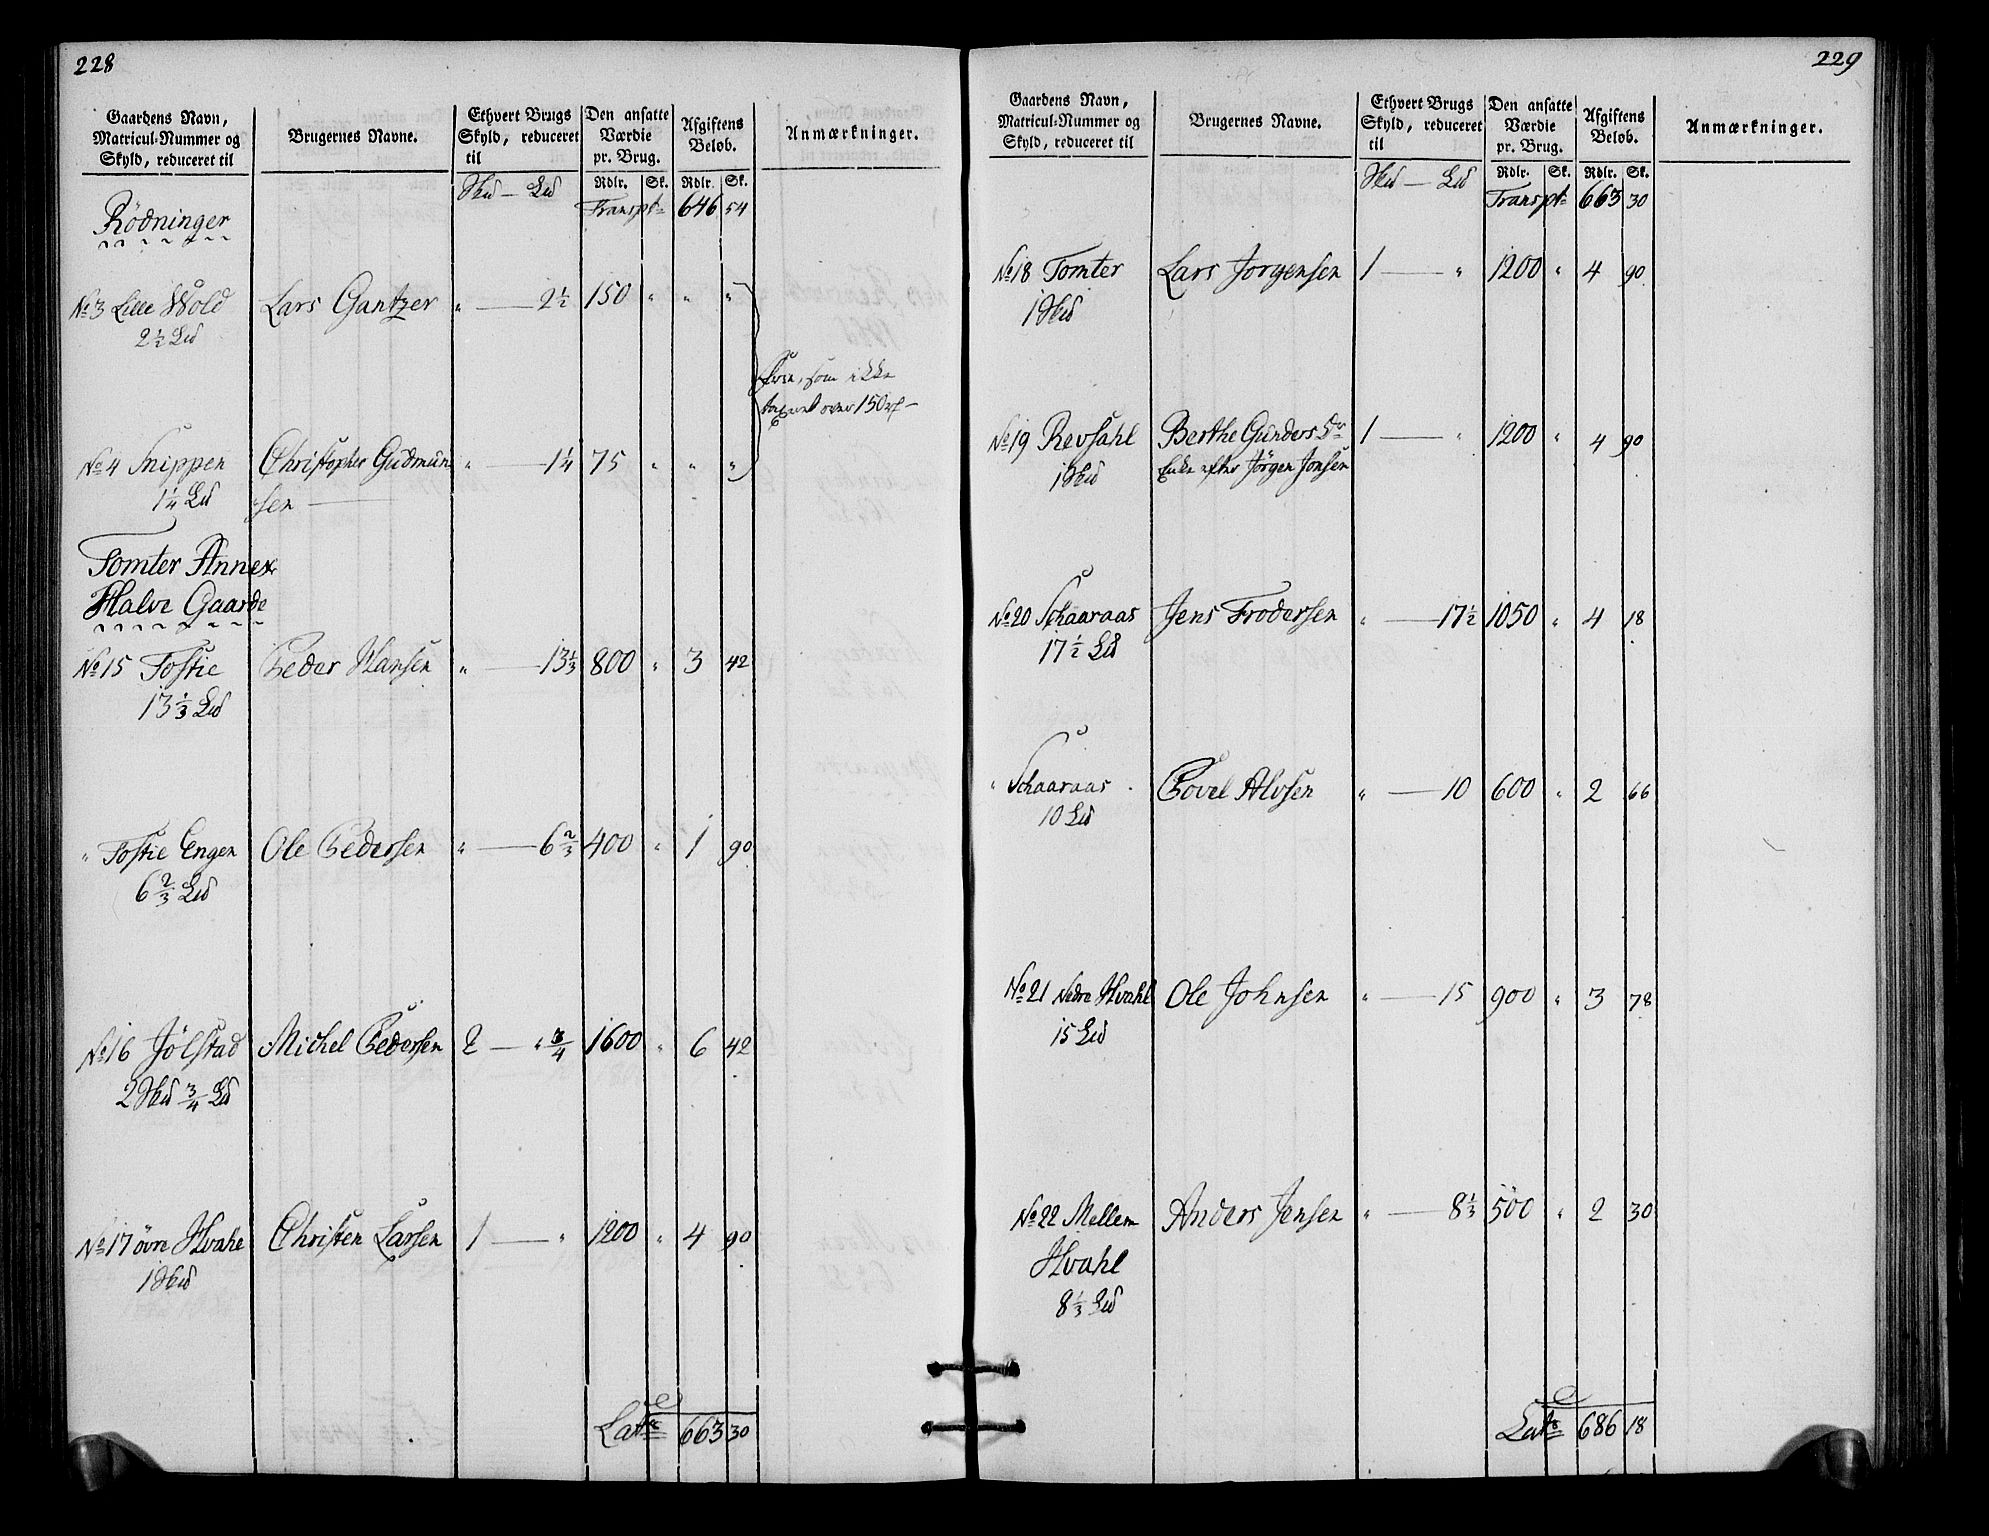 228
Gaardens Navn, Matricul-Nummer og Skyld, reduceret til
Brugernes Navne.
Ethvert Brugs Skyld, reduceret til
Den ansatte Værdie pr. Brug.
Afgiftens Beløb.
Anmærkninger.
Rdlr. Sk. Rdlr. Sk.
Skd — Ld Transpt 646 54
Rödninger
No 3 Lille Wold Lars Gantzer " — 2½ 150 " " "
2½ Ld
Frie, som ikke
taxeret over 150
No 4 Snippen Christopher Gudmun " — 1¼ 75 " " "
1¼ Ld sen
Tomter Annex
Halve Gaarde
No 15 Fostie Peder Hansen " — 13⅓ 800 " 3 42
13⅓ Ld
" Fostie Engen Ole Pedersen " — 6⅔ 400 " 1 90
6⅔ Ld
No 16 Jölstad Michel Pedersen 2 — " ¾ 1600 " 6 42
2 Skd ¾ Ld
No 17 övre Hvahl Christen Larsen 1 — " 1200 " 4 90
1 Skd
Latr 663 30
229
Gaardens Navn, Matricul-Nummer og Skyld, reduceret til
Brugernes Navne.
Ethvert Brugs Skyld, reduceret til
Den ansatte Værdie pr. Brug.
Afgiftens Beløb.
Anmærkninger.
Rdlr. Sk. Rdlr. Sk.
Skd — Ld Transpt 663 30
No 18 Tomter Lars Jorgensen 1 — " 1200 " 4 90
1 Skd
No 19 Revsahl Berthe Gunders Dr 1 — " 1200 " 4 90
1 Skd Enke efter Jörgen Jonsen
No 20 Schaaraas Jens Frodersen " — 17½ 1050 " 4 18
17½ Ld
" Schaaraas Povel Alvsen " — 10 600 " 2 66
10 Ld
No 21 Nedre Hvahl Ole Johnsen " — 15 900 " 3 78
15 Ld
No 22 Mellem Anders Jensen " — 8⅓ 500 " 2 30
Hvahl
8⅓ Ld
Latr 686 18